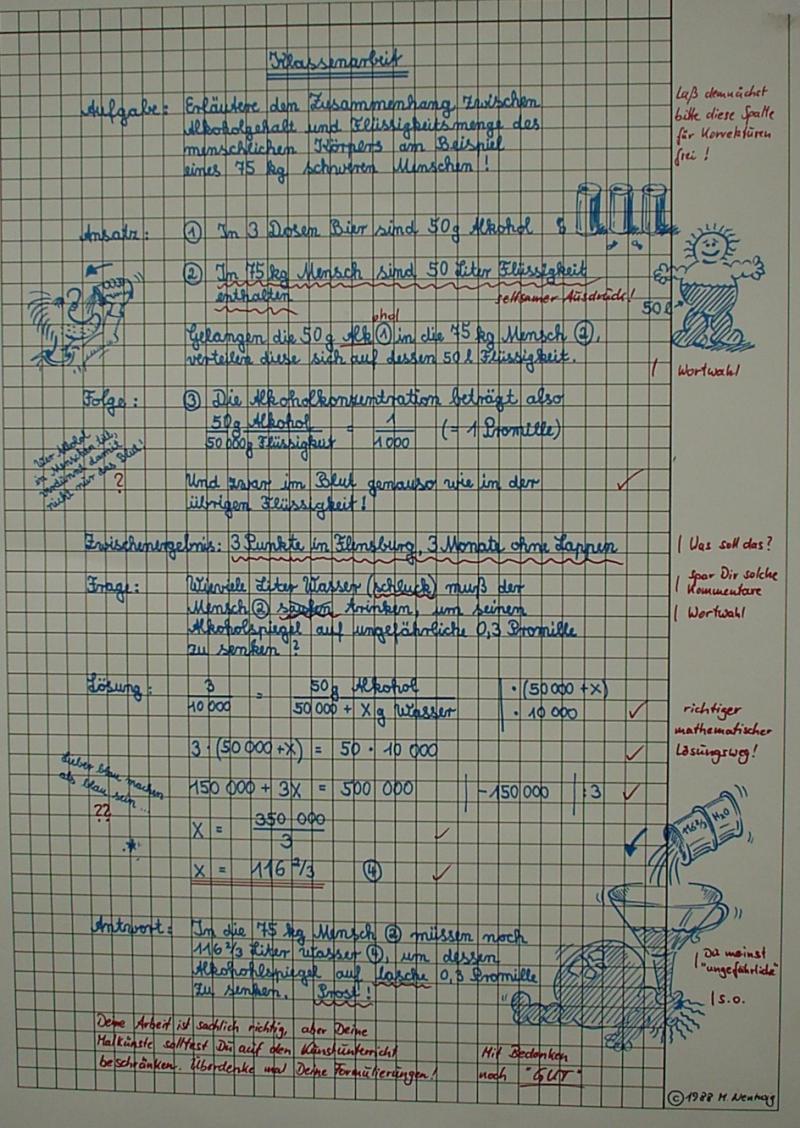 Klassenarbeit
Laß demnächst
bitte diese Spalte
für Korrektüren
frei !
Aufgabe: Erläutere den Zusammenhang zwischen
Alkoholgehalt und Flüssigkeitsmenge des
menschlichen Körpers am Beispiel
eines 75 kg schweren Menschen !
Ansatz: ① In 3 Dosen Bier sind 50g Alkohol
② In 75 kg Mensch sind 50 Liter Flüssigkeit
enthalten seltsamer Ausdrück!
50 l
ohol
Gelangen die 50 g Alk ① in die 75 kg Mensch ②,
verteilen diese sich auf dessen 50 l Flüssigkeit.
| Wortwahl
Folge: ③ Die Alkoholkonzentration beträgt also
50g Alkohol / 50 000g Flüssigkeit = 1 / 1000 (= 1 Promille)
Wer Alkohol
in Menschen tut,
verdünnt damit
nicht nur das Blut!
?
Und zwar im Blut genauso wie in der ✓
übrigen Flüssigkeit!
Zwischenergebnis: 3 Punkte in Flensburg, 3 Monate ohne Lappen | Was soll das?
Frage: Wieviele Liter Wasser (schluck) muß der | Spar Dir solche
Kommentare
Mensch ② saufen trinken, um seinen | Wortwahl
Alkoholspiegel auf ungefährliche 0,3 Promille
zu senken ?
Lösung: 3 / 10 000 = 50g Alkohol / 50 000 + X g Wasser | · (50 000 + x) · 10 000 ✓
richtiger
mathematischer
Lösungsweg!
3 · (50 000 + x) = 50 · 10 000 ✓
Lieber blau machen
als blau sein ...
??
150 000 + 3X = 500 000 | -150 000 | :3 ✓
X = 350 000 / 3 ✓
X = 116 2/3 ④ ✓
116 2/3 H2O
Antwort: In die 75 kg Mensch ② müssen noch
116 2/3 Liter Wasser ④, um dessen
Alkohohlspiegel auf lasche 0,3 Promille
zu senken. Prost !
| Du meinst
"ungefährliche"
| s.o.
Deine Arbeit ist sachlich richtig, aber Deine
Malkünste solltest Du auf den Künstünterricht
beschränken. Überdenke mal Deine Formülierungen!
Mit Bedenken
noch "GUT"
© 1988 M.